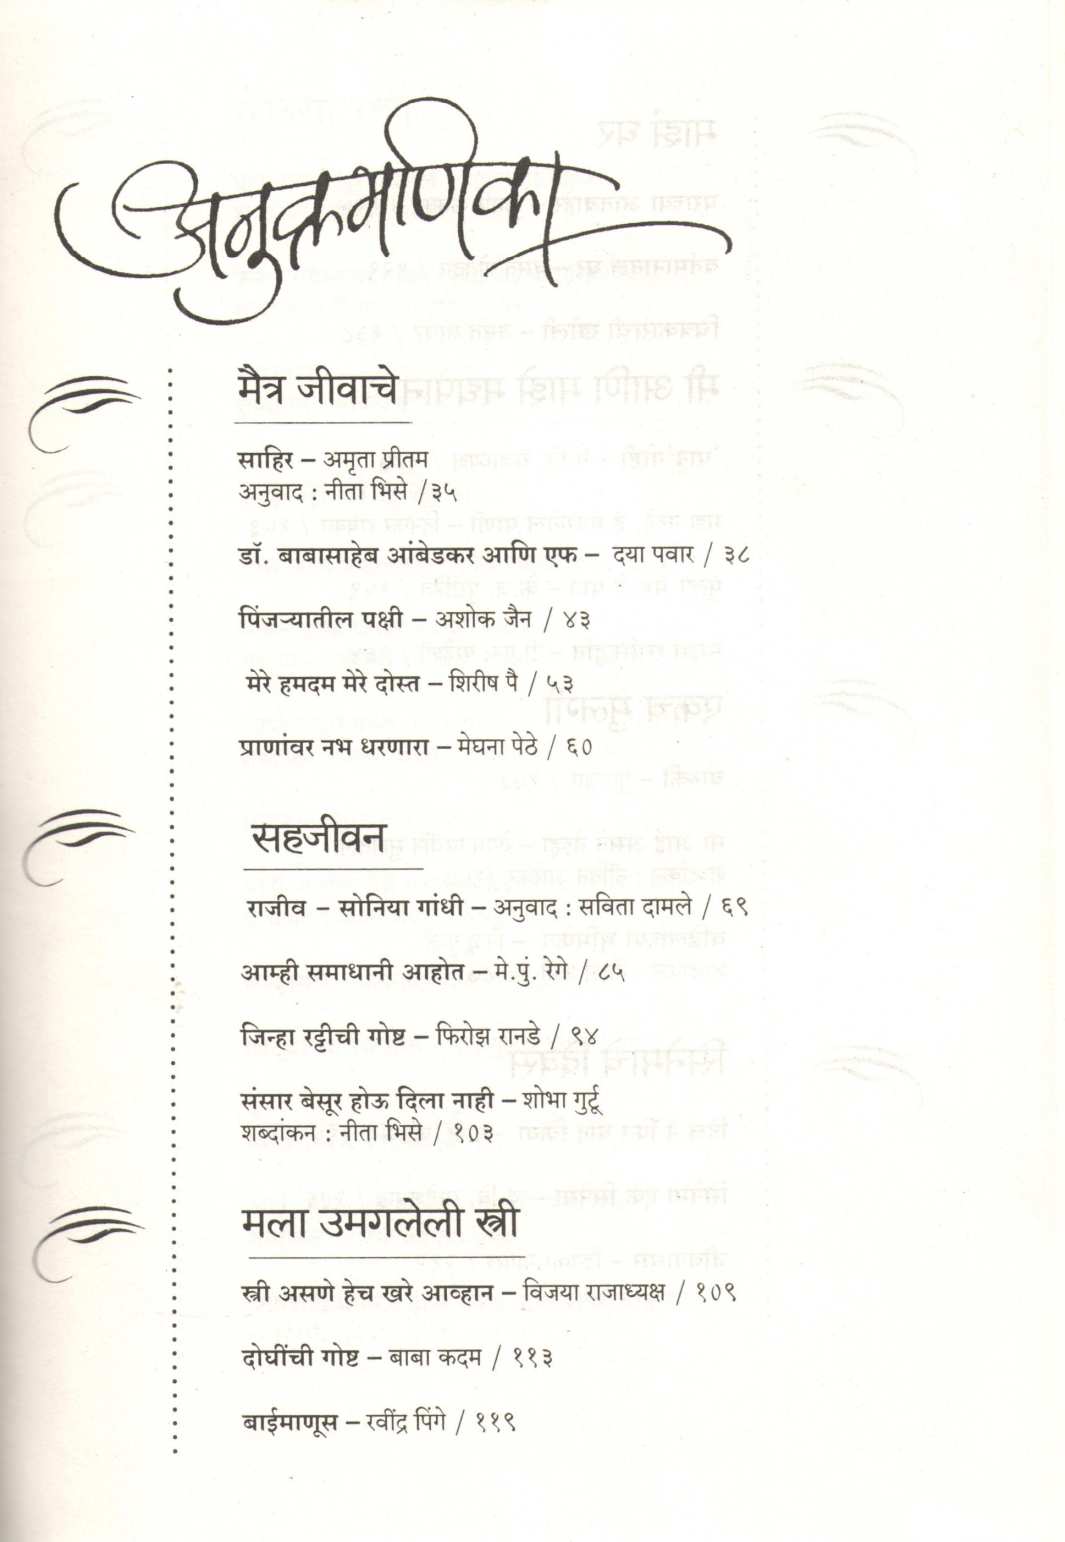 अनुक्रमणिका
मैत्र जीवाचे
साहिर – अमृता प्रीतम
अनुवाद : नीता भिसे /३५
डॉ. बाबासाहेब आंबेडकर आणि एफ – दया पवार / ३८
पिंजऱ्यातील पक्षी – अशोक जैन / ४३
मेरे हमदम मेरे दोस्त – शिरीष पै / ५३
प्राणांवर नभ धरणारा – मेघना पेठे / ६०
सहजीवन
राजीव – सोनिया गांधी – अनुवाद : सविता दामले / ६९
आम्ही समाधानी आहोत – मे.पुं. रेगे / ८५
जिन्हा रट्टीची गोष्ट – फिरोझ रानडे / ९४
संसार बेसूर होऊ दिला नाही – शोभा गुर्टू
शब्दांकन : नीता भिसे / १०३
मला उमगलेली स्त्री
स्त्री असणे हेच खरे आव्हान – विजया राजाध्यक्ष / १०९
दोघींची गोष्ट – बाबा कदम / ११३
बाईमाणूस – रवींद्र पिंगे / ११९